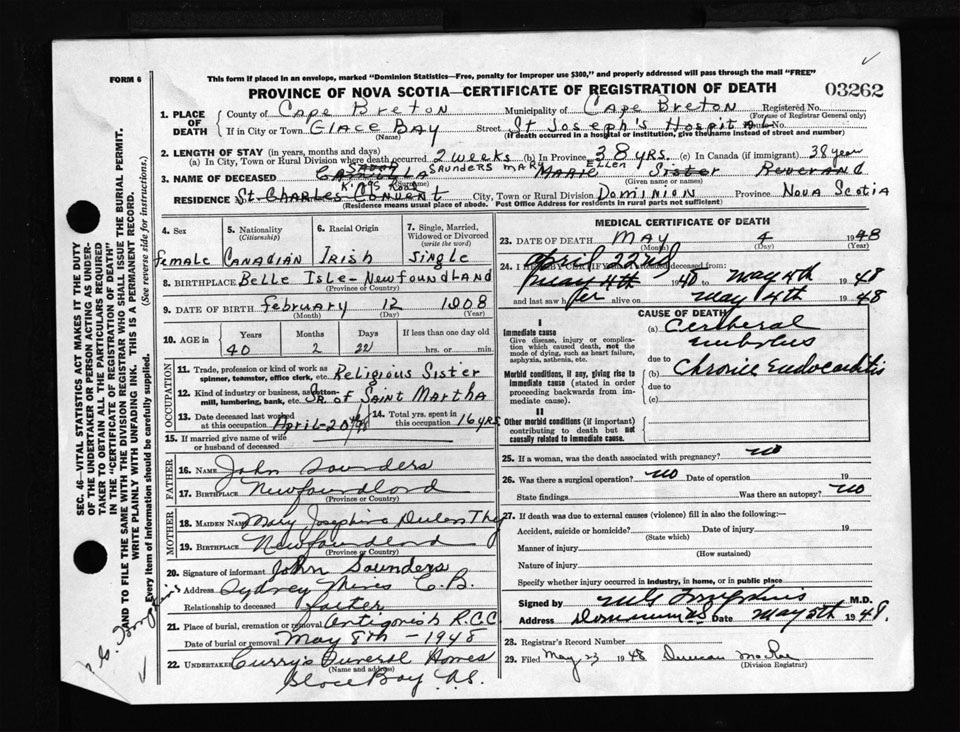 FORM 6
This form if placed in an envelope, marked "Dominion Statistics—Free, penalty for improper use $300," and properly addressed will pass through the mail "FREE"
PROVINCE OF NOVA SCOTIA—CERTIFICATE OF REGISTRATION OF DEATH
03262
1. PLACE OF DEATH
County of Cape Breton Municipality of Cape Breton Registered No.
(For use of Registrar General only)
If in City or Town Glace Bay Street St Joseph's Hospital No.
(Name) (If death occurred in a hospital or institution, give the name instead of street and number)
2. LENGTH OF STAY (in years, months and days)
(a) In City, Town or Rural Division where death occurred 2 weeks (b) In Province 38 yrs. (c) In Canada (if immigrant) 38 year
Saunders Mary Ellen
3. NAME OF DECEASED Marie Sister Reverand
(Surname) (Given name or names)
Kings Road
RESIDENCE St. Charles Convent City, Town or Rural Division Dominion Province Nova Scotia
(Residence means usual place of abode. Post Office Address for residents in rural parts not sufficient)
4. Sex
5. Nationality (Citizenship)
6. Racial Origin
7. Single, Married, Widowed or Divorced (write the word)
Female Canadian Irish Single
8. BIRTHPLACE Belle Isle-Newfoundland
(Province or Country)
9. DATE OF BIRTH February 12 1908
(Month) (Day) (Year)
10. AGE in Years Months Days If less than one day
40 2 22 hrs. or min.
OCCUPATION
11. Trade, profession or kind of work as spinner, teamster, office clerk, etc. Religious Sister
12. Kind of industry or business, as cotton-mill, lumbering, bank, etc. Sr. of Saint Martha
13. Date deceased last worked at this occupation April-20th/48
14. Total yrs. spent in this occupation 16 yrs.
15. If married give name of wife or husband of deceased
FATHER
16. NAME John Saunders
17. BIRTHPLACE Newfoundland
(Province or Country)
MOTHER
18. MAIDEN NAME Mary Josephine
19. BIRTHPLACE Newfoundland
(Province or Country)
20. Signature of informant John Saunders
Address Sydney Mines C.B.
Relationship to deceased
21. Place of burial, cremation or removal Antigonish R.C.C
Date of burial or removal May 8th-1948
22. Undertaker Curry's Funeral Homes
(Name and address)
Glace Bay NS.
MEDICAL CERTIFICATE OF DEATH
23. DATE OF DEATH May 4 1948
(Month) (Day) (Year)
April 22nd
24. I HEREBY CERTIFY that I attended deceased from:
May 4th 1940 to May 4th 1948
and last saw her alive on May 4th 1948
CAUSE OF DEATH
I
Immediate cause
Give disease, injury or complication which caused death, not the mode of dying, such as heart failure, asphyxia, asthenia, etc.
(a) Cerberal embolus
due to
Morbid conditions, if any, giving rise to immediate cause (stated in order proceeding backwards from immediate cause).
(b) Chronic Endocarditis
due to
(c)
II
Other morbid conditions (if important) contributing to death but not causally related to immediate cause.
25. If a woman, was the death associated with pregnancy? no
26. Was there a surgical operation? no Date of operation 19
State findings Was there an autopsy? no
27. If death was due to external causes (violence) fill in also the following:—
Accident, suicide or homicide? Date of injury 19
(State which)
Manner of injury
(How sustained)
Nature of injury
Specify whether injury occurred in industry, in home, or in public place
Signed by M.D.
Address Dominion NS Date May 5th 1948.
28. Registrar's Record Number
29. Filed May 23 1948 Duncan MacRae
(Division Registrar)
SEC. 46—VITAL STATISTICS ACT MAKES IT THE DUTY
OF THE UNDERTAKER OR PERSON ACTING AS UNDER-
TAKER TO OBTAIN ALL THE PARTICULARS REQUIRED
IN THE "CERTIFICATE OF REGISTRATION OF DEATH"
AND TO FILE THE SAME WITH THE DIVISION REGISTRAR WHO SHALL ISSUE THE BURIAL PERMIT.
WRITE PLAINLY WITH UNFADING INK. THIS IS A PERMANENT RECORD.
Every item of information should be carefully supplied. (See reverse side for instructions.)